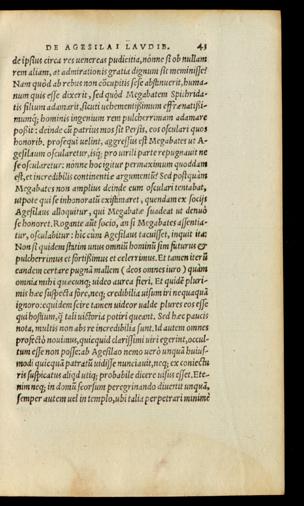 DE AGESILAI LAVDIB. 43
de ipsius circa res uenereas pudicitia, nónne si ob nullam
rem aliam, at admirationis gratia dignum sit meminisse?
Nam quòd ab rebus non cōcupitis sese abstinuerit, huma-
num quis esse dixerit, sed quòd Megabatem Spithrida-
tis filium adamarit, sicuti uehementißimum effrœnatißi-
mumq; hominis ingenium rem pulcherrimam adamare
poßit: deinde cū patrius mos sit Persis, eos osculari quos
honorib. prosequi uelint, aggressus est Megabates ut A-
gesilaum oscularetur, isq; pro uirili parte repugnauit ne
se oscularetur: nónne hoc igitur permaximum quoddam
est, et incredibilis continentiæ argumentū? Sed postquàm
Megabates non amplius deinde eum osculari tentabat,
utpote qui se inhonoratū existimaret, quendam ex socijs
Agesilaus alloquitur, qui Megabatæ suadeat ut denuò
se honoret. Rogante aūt socio, an si Megabates assentia-
tur, osculabitur: hîc cùm Agesilaus tacuisset, inquit ita:
Non si quidem statim unus omniū hominū sim futurus &
pulcherrimus et fortißimus et celerrimus. Et tamen iterū
eandem certare pugnā mallem (deos omnes iuro) quàm
omnia mihi quæcunq; uideo aurea fieri. Et quidē pluri-
mis hæc suspecta fore, neq; credibilia uisum iri nequaquā
ignoro: equidem scire tamen uideor ualde plures eos esse
qui hostium, q̄ tali uictoria potiri queant. Sed hæc paucis
nota, multis non abs re incredibilia sunt. Id autem omnes
profectò nouimus, quicquid clarißimi uiri egerint, occul-
tum esse non posse: ab Agesilao nemo uerò unquā huius-
modi quicquā patratū uidisse nunciauit, neq; ex coniectu
ris suspicatus aliqd utiq; probabile dicere uisus esset. Ete-
nim neq; in domū seorsum peregrinando diuertit unquā,
semper autem uel in templo, ubi talia perpetrari minimè